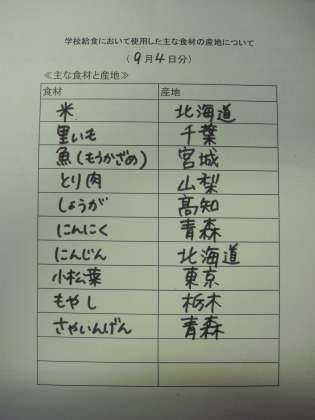 学校給食において使用した主な食材の産地について
(9月4日分)
≪主な食材と産地≫
食材 産地
米 北海道
里いも 千葉
魚(もうかざめ) 宮城
とり肉 山梨
しょうが 高知
にんにく 青森
にんじん 北海道
小松葉 東京
もやし 栃木
さやいんげん 青森